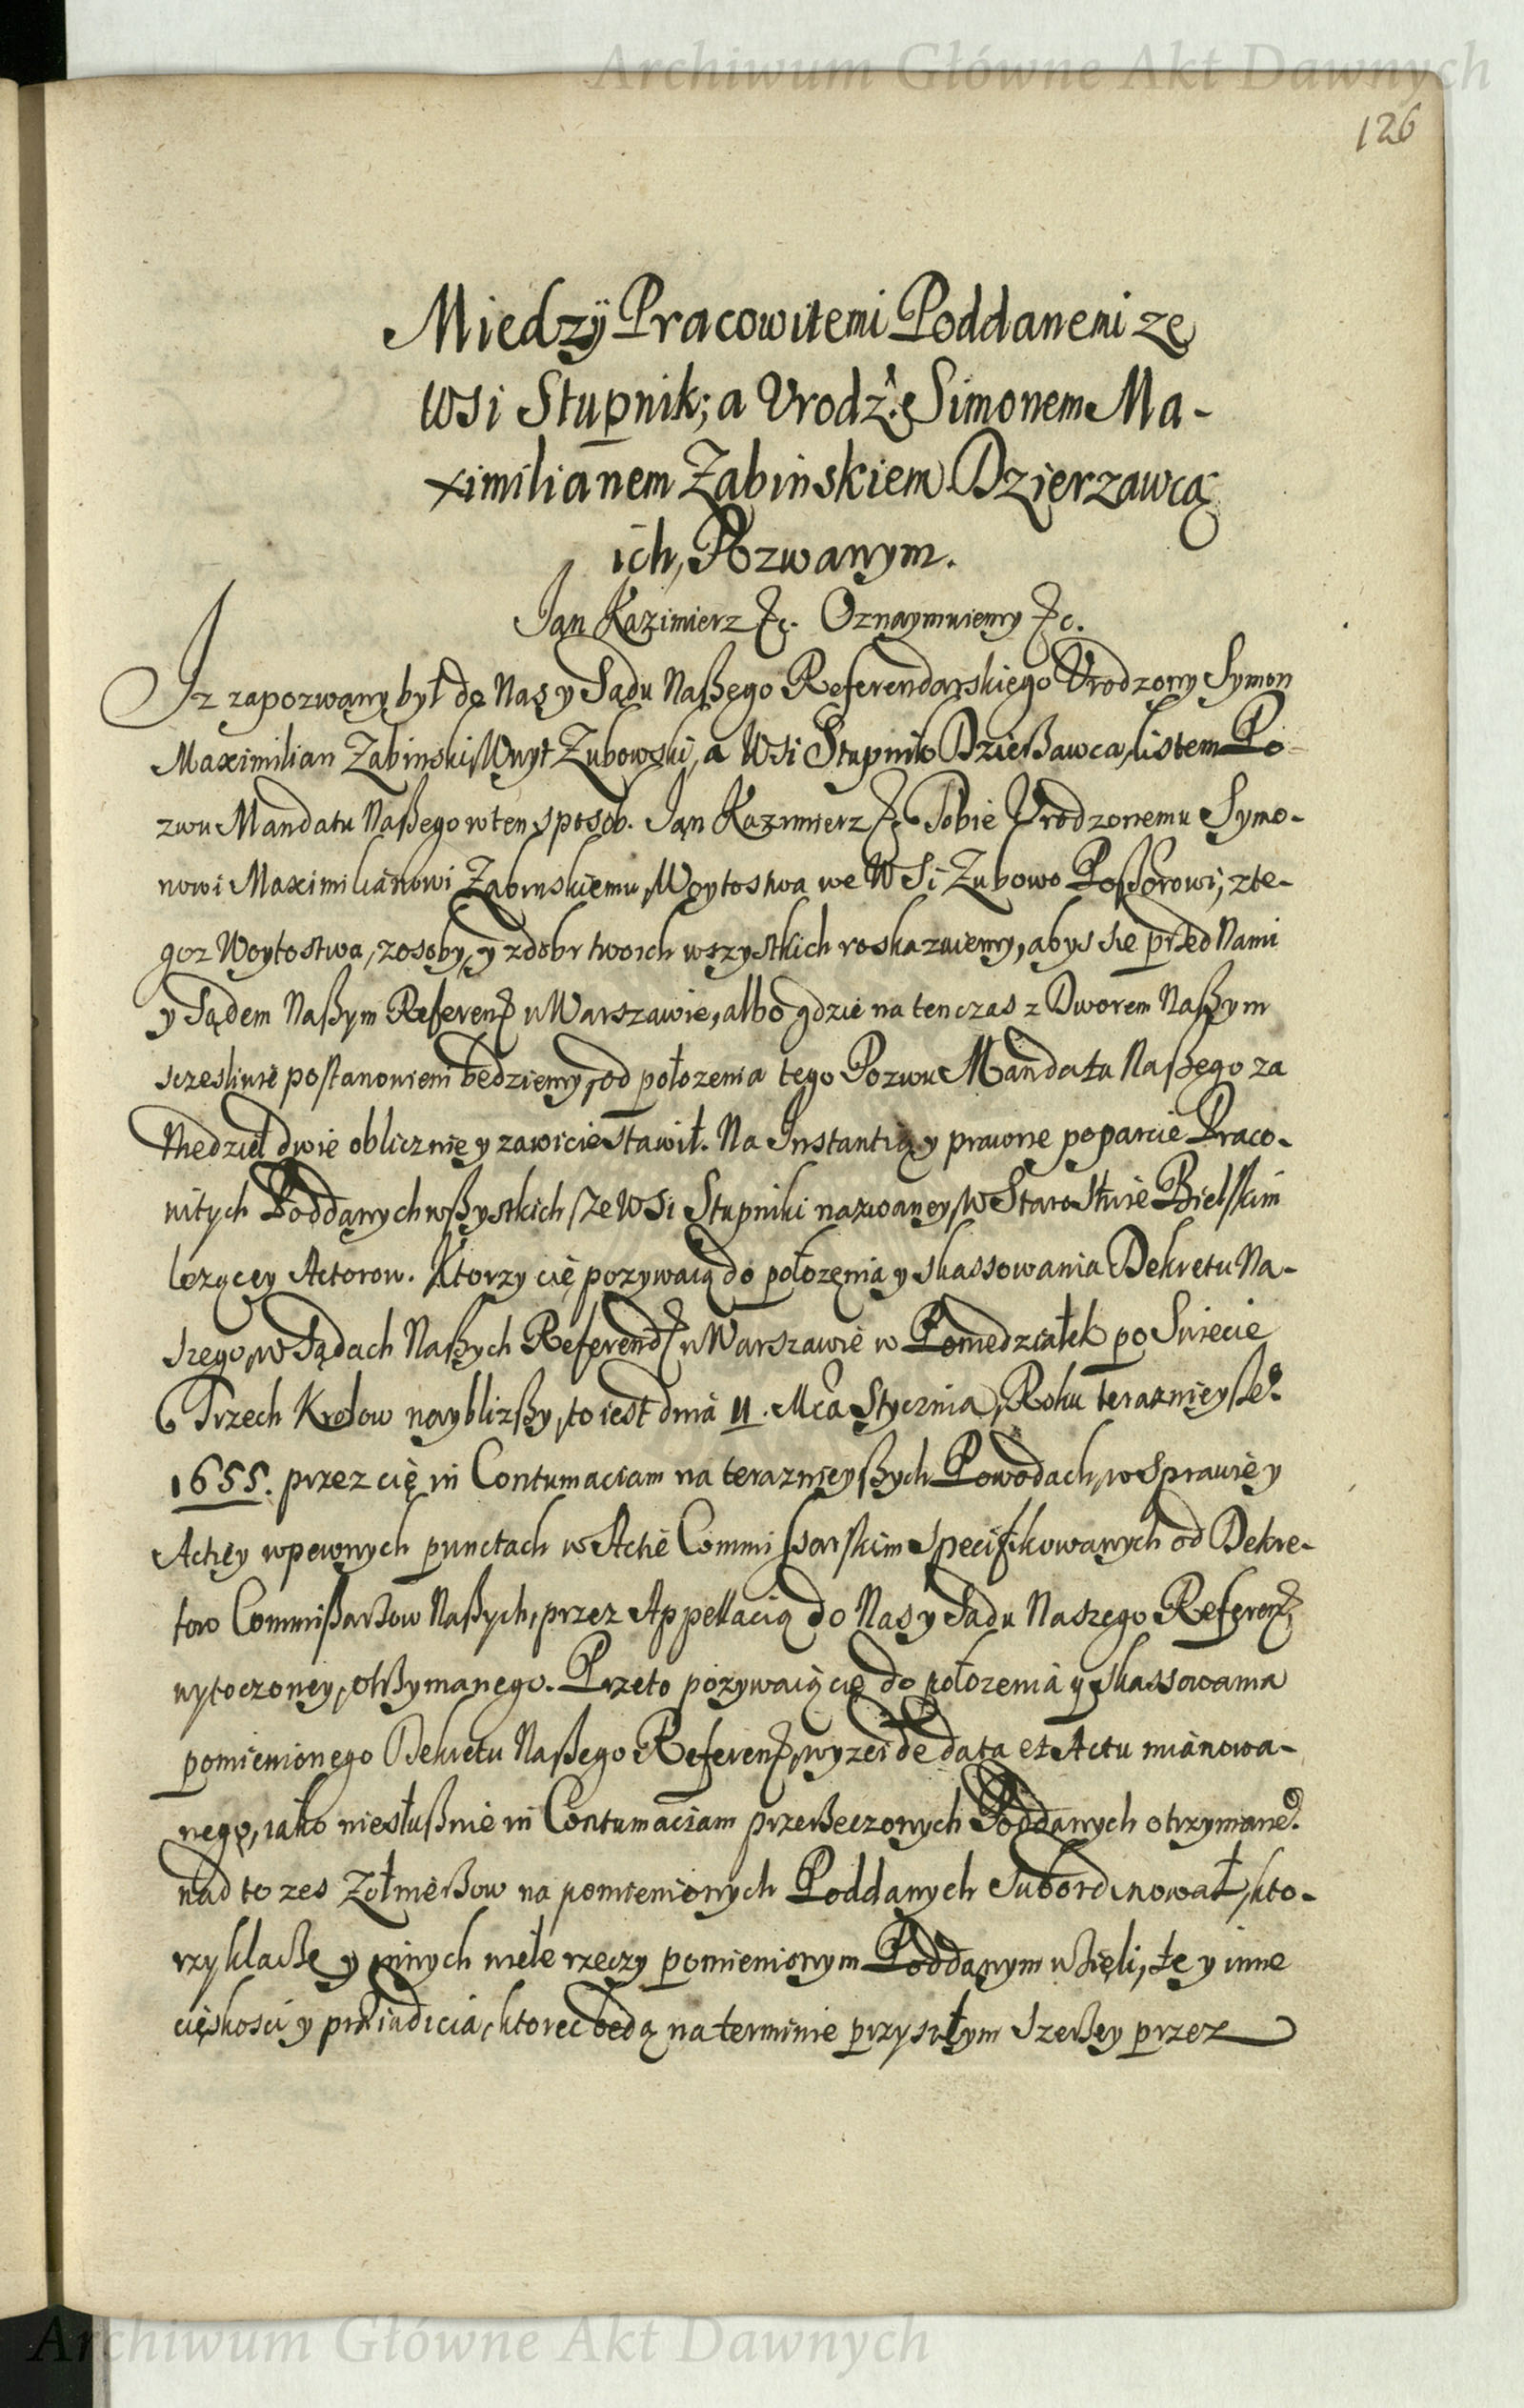 Archiwum Główne Akt Dawnych
126
Miedzÿ Pracowitemi Poddanemi ze
Wsi Stupnik; a Vrodz. Simonem Ma-
ximilianem Zabinskiem Dzierzawcą
ich, Pozwanym.
Jan Kazimierz &c. Oznaymuiemy &c.
Iz zapozwany był do Nas y Sądu Naßego Referendarskiego Vrodzony Symon
Maximilian Zabinski, Woyt Zubowski, a Wsi Stupnik Dzierßawca, listem Po-
zwu Mandatu Naßego w ten sposob. Jan Kazimierz &c Tobie Vrodzonemu Symo-
nowi Maximilianowi Zabinskiemu, Woytostwa we Wsi Zubowo Possorowi, z te-
goz Woytostwa, z osoby, y z dobr twoich wszystkich roskazuiemy, abys sie przed Nami
y Sądem Naßym Referen: w Warszawie, albo gdzie na ten czas z Dworem Naßym
sczesliwie postanowieni bedziemy, od położenia tego Pozwu Mandatu Naßego za
Niedziel dwie oblicznie y zawicie stawił. Na Instantią y prawne poparcie Praco-
witych Poddanych wßystkich ze Wsi Stupniki nazwaney, w Starostwie Bielskim
lezącey Actorow. Ktorzy cię pozywaią do położenia y skassowania Dekretu Na-
szego, w Sądach Naßych Referend: w Warszawie w Poniedziałek po Swiecie
Trzech Krolow nayblizßy, to iest dnia 11. Mca Stycznia, Roku teraznieyße°
1655. przez cię in Contumaciam na teraznieyßych Powodach, w Sprawie y
Actiey w pewnych punctach w Actie Commissarskim specifikowanych od Dekre-
tow Commißarzow Naßych, przez Appellacią do Nas y Sądu Naszego Referen:
wytoczoney, otrßymanego. Przeto pozywaią cię do położenia y skassowania
pomienionego Dekretu Naßego Referen: wyzei de data et Actu mianowa-
nego, iako niesłußnie in Contumaciam przerßeczonych Poddanych otrzymane°
nad to zes Zołnierßow na pomienionych Poddanych Subordinował, kto-
rzy klacße y innych wiele rzeczy pomienionym Poddanym wzięli, te y inne
cięskosci y praeiudicia, ktoreć bedą na terminie przyszłym szerßey przez
Archiwum Główne Akt Dawnych